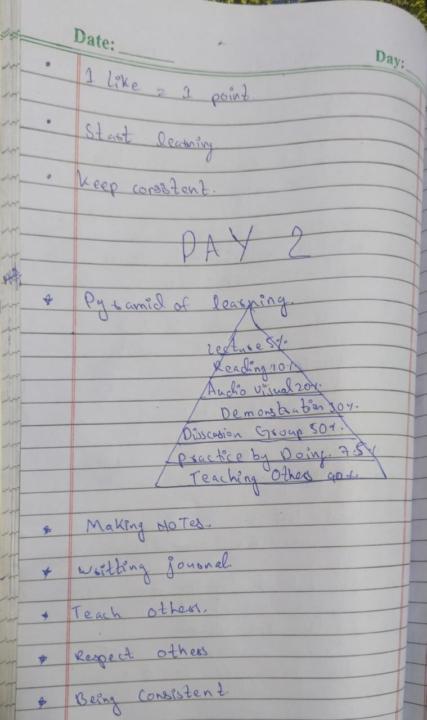 Date:
Day:
1 like = 1 point
Start learning
Keep consistent.
DAY 2
Pyramid of learning.
Lecture 5%
Reading 10%
Audio visual 20%
Demonstration 30%
Disscusion Group 50%
Practice by Doing. 75%
Teaching Others 90%
Making NOTes.
Writting jounal
Teach others.
Respect others
Being Consistent